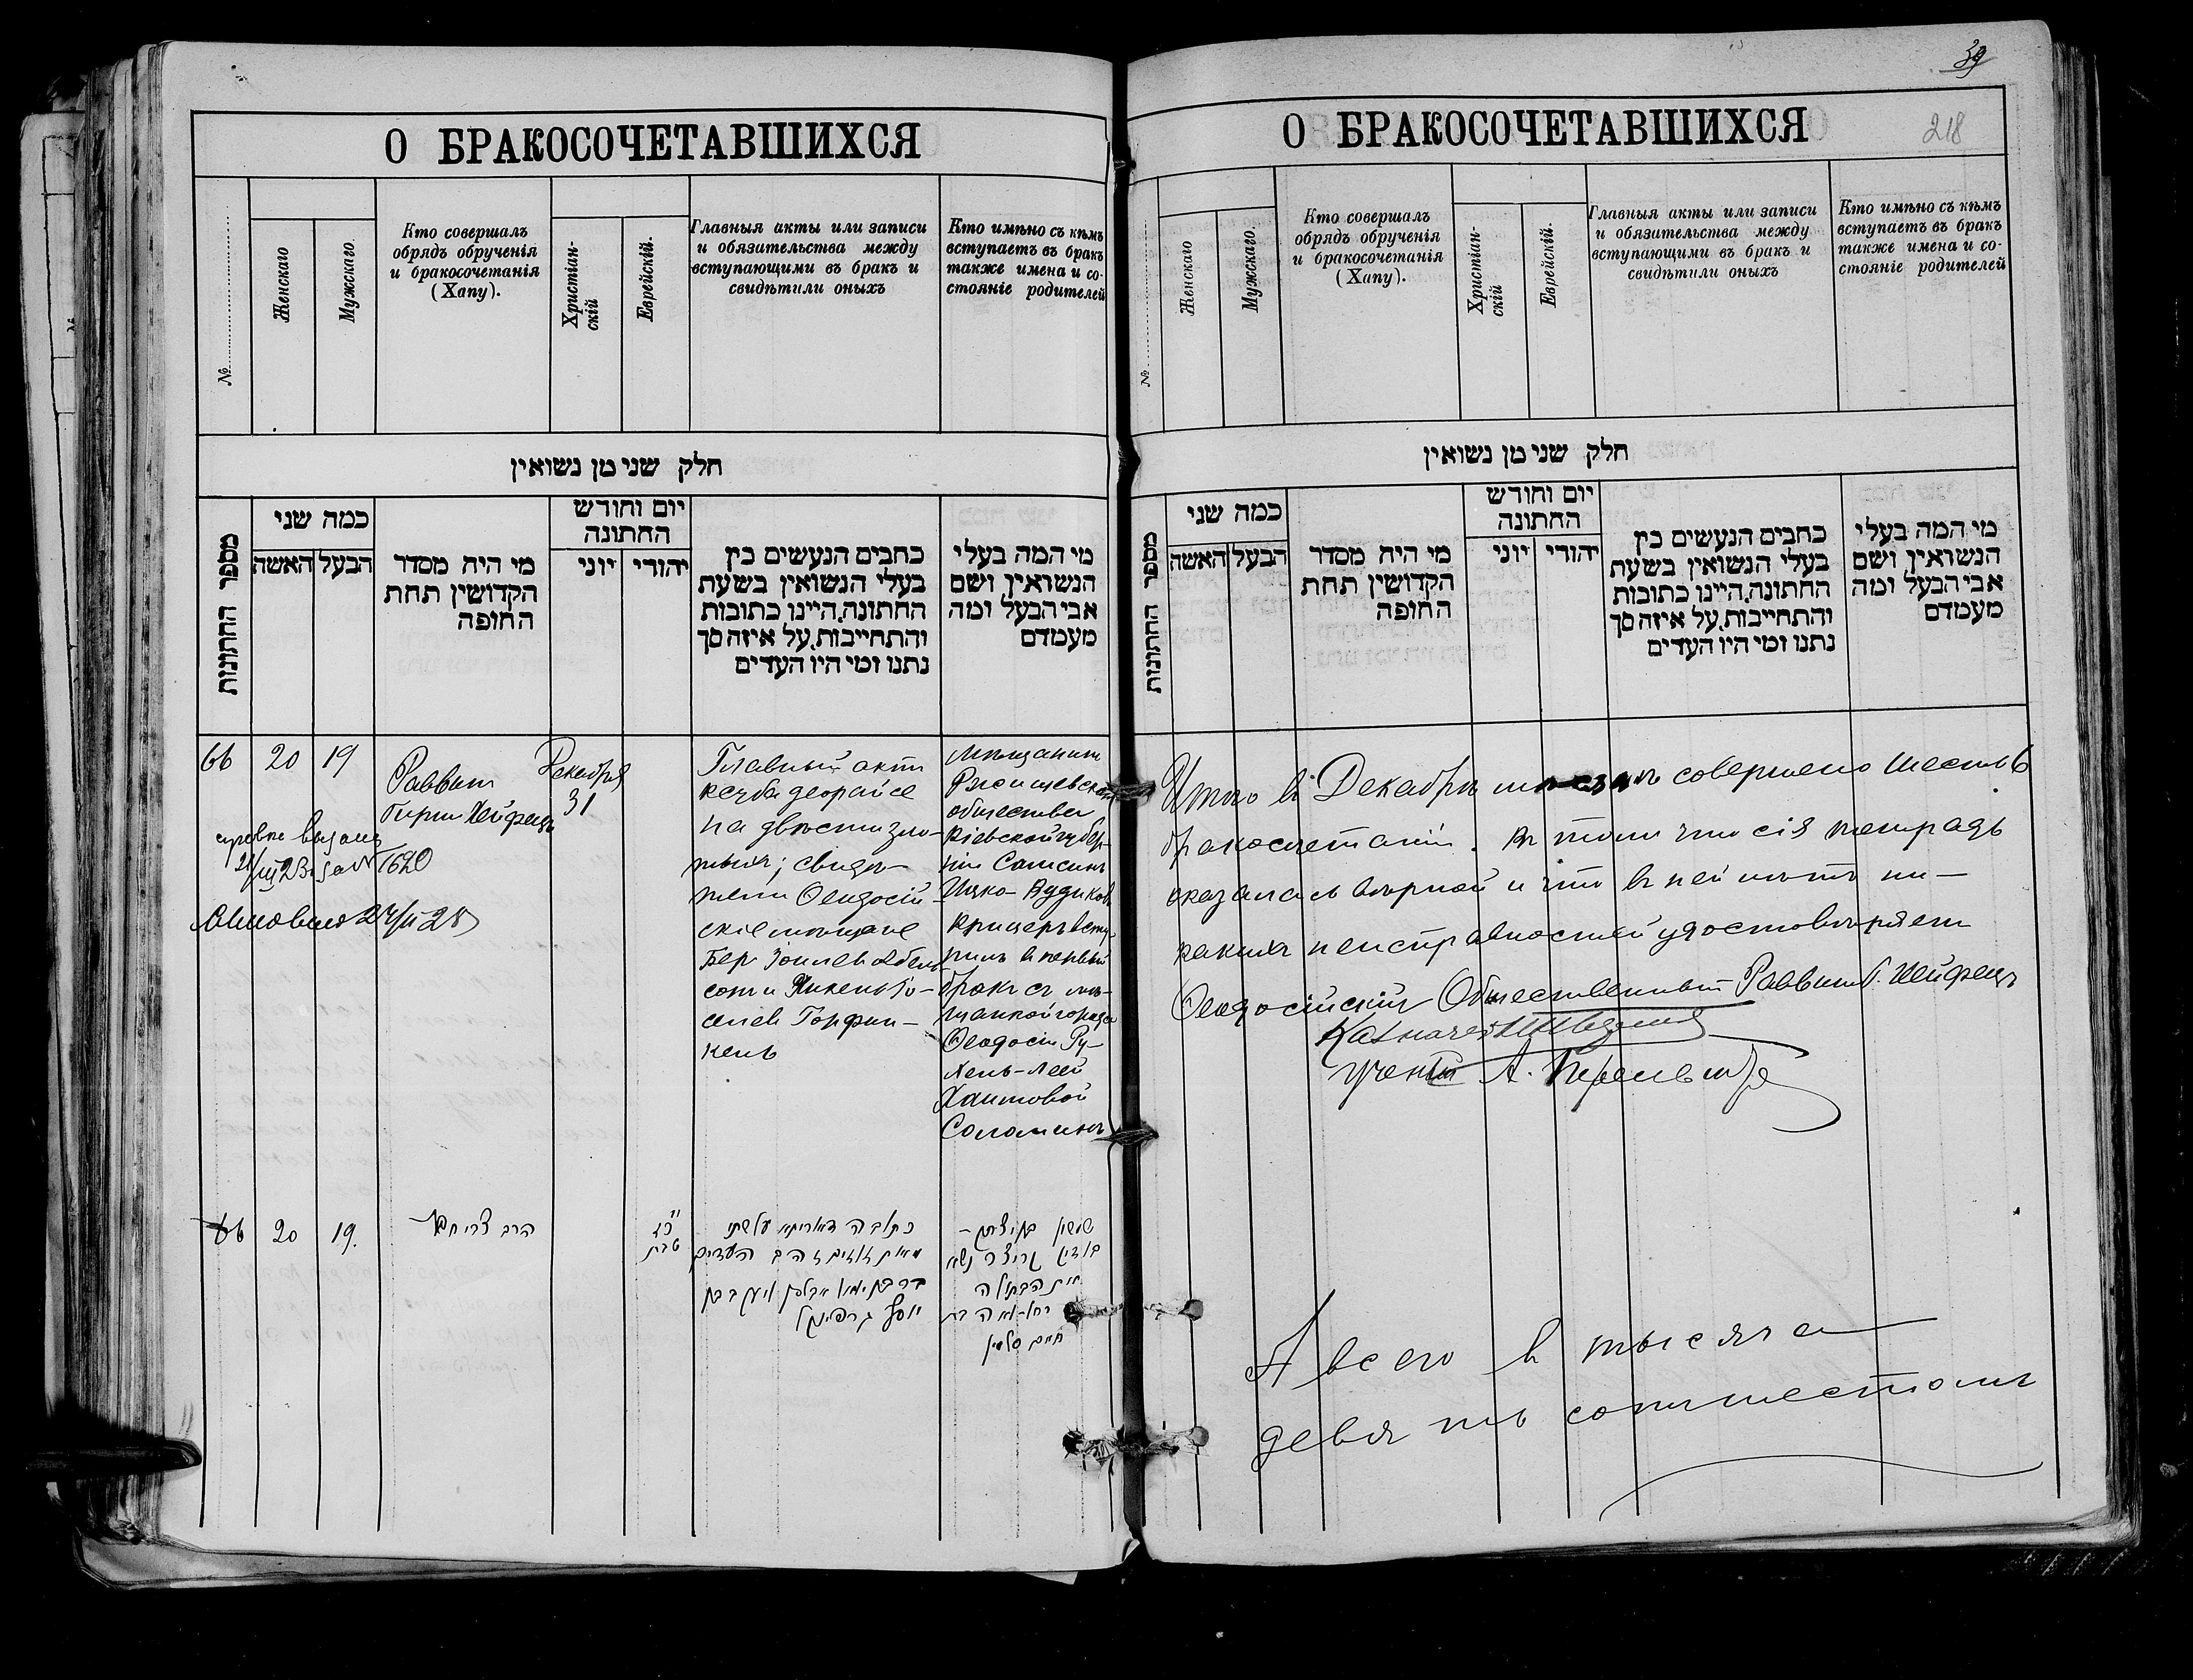 О БРАКОСОЧЕТАВШИХСЯ
№
Женскаго
Мужскаго.
Кто совершалъ
обрядъ обрученія
и бракосочетанія
(Хапу).
Христіан-
скій
Еврейскій.
Главныя акты или записи
и обязательства между
вступающими въ бракъ и
свидѣтили оныхъ
Кто имѣно съ кѣмъ
вступаетъ въ бракъ
также имена и со-
стояніе родителей
חלק שני מן נשואין
מספר החתונות
כמה שני
האשה
הבעל
מי היה מסדר
הקדושין תחת
החופה
יום וחודש
החתונה
יוני
יהודי
כתבים הנעשים בין
בעלי הנשואין בשעת
החתונה, היינו כתובות
והתחייבות, על איזה סך
נתנו ומי היו העדים
מי המה בעלי
הנשואין ושם
אבי הבעל ומה
מעמדם
66
20
19
Раввин
Гирш Хейфецъ
Декабря
31
Главный актъ
кетуба деорайсе
на двѣсти зло-
тыхъ; свидѣ-
тели Ѳеодосій-
скіе мѣщане
Бер
сонъ и
селев Горфин-
кель
Мѣщанинъ
Ржищевскаго
общества
Кіевской губер-
ніи Самсонъ
Ицко-Дудиковъ
Крицеръ всту-
пилъ в первый
бракъ съ мѣ-
щанкой города
Ѳеодосіи Ру-
хель-Леей
Хаимовой
Соломинъ
выдана
1620
66
20
19.
הרב צבי
כד
טבת
כתובה דאריתא על שתי
מאות זוזים זהב העדים
יעקב בן
יוסף גרפינקל
שמשון בן יצחק-
דודיק קריצר נשא
את הבתולה
רחל-לאה בת
חיים סלמין
39
218
О БРАКОСОЧЕТАВШИХСЯ
№
Женскаго
Мужскаго.
Кто совершалъ
обрядъ обрученія
и бракосочетанія
(Хапу).
Христіан-
скій
Еврейскій.
Главныя акты или записи
и обязательства между
вступающими въ бракъ и
свидѣтили оныхъ
Кто имѣно съ кѣмъ
вступаетъ въ бракъ
также имена и со-
стояніе родителей
חלק שני מן נשואין
מספר החתונות
כמה שני
האשה
הבעל
מי היה מסדר
הקדושין תחת
החופה
יום וחודש
החתונה
יוני
יהודי
כתבים הנעשים בין
בעלי הנשואין בשעת
החתונה, היינו כתובות
והתחייבות, על איזה סך
נתנו ומי היו העדים
מי המה בעלי
הנשואין ושם
אבי הבעל ומה
מעמדם
Итого въ Декабрѣ мѣсяцѣ совершено шесть 6
бракосочетаній. въ томъ что сія тетрадь
оказалась вѣрной и что въ ней нѣтъ ни-
какихъ неисправностей удостовѣряетъ
Ѳеодосійскій Общественный Раввинъ Г. Хейфецъ
Казначей
Ученый А.
А всего въ тысяча
девятьсотъ шестомъ